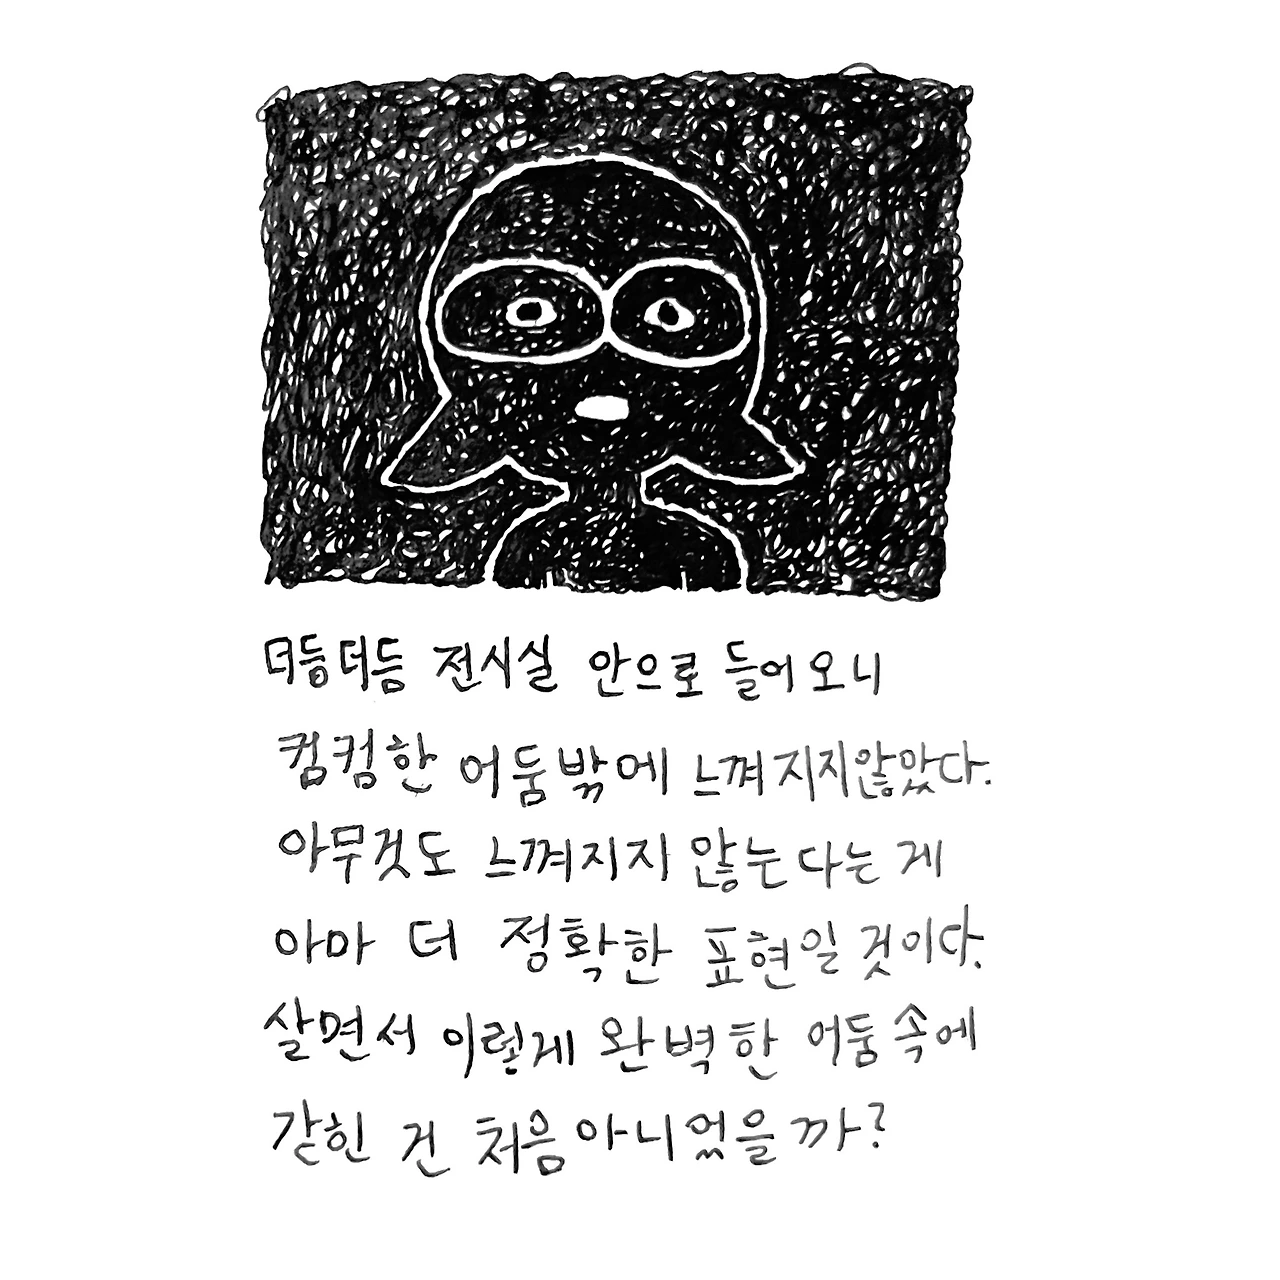 더듬더듬 전시실 안으로 들어오니
컴컴한 어둠밖에 느껴지지않았다.
아무것도 느껴지지 않는다는 게
아마 더 정확한 표현일 것이다.
살면서 이렇게 완벽한 어둠 속에
갇힌 건 처음아니었을까?